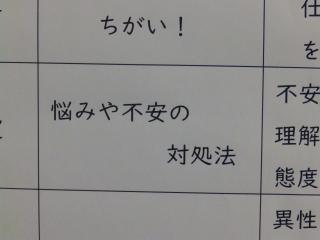 ちがい！
悩みや不安の
対処法
仕
を
不安
理解
態度
異性